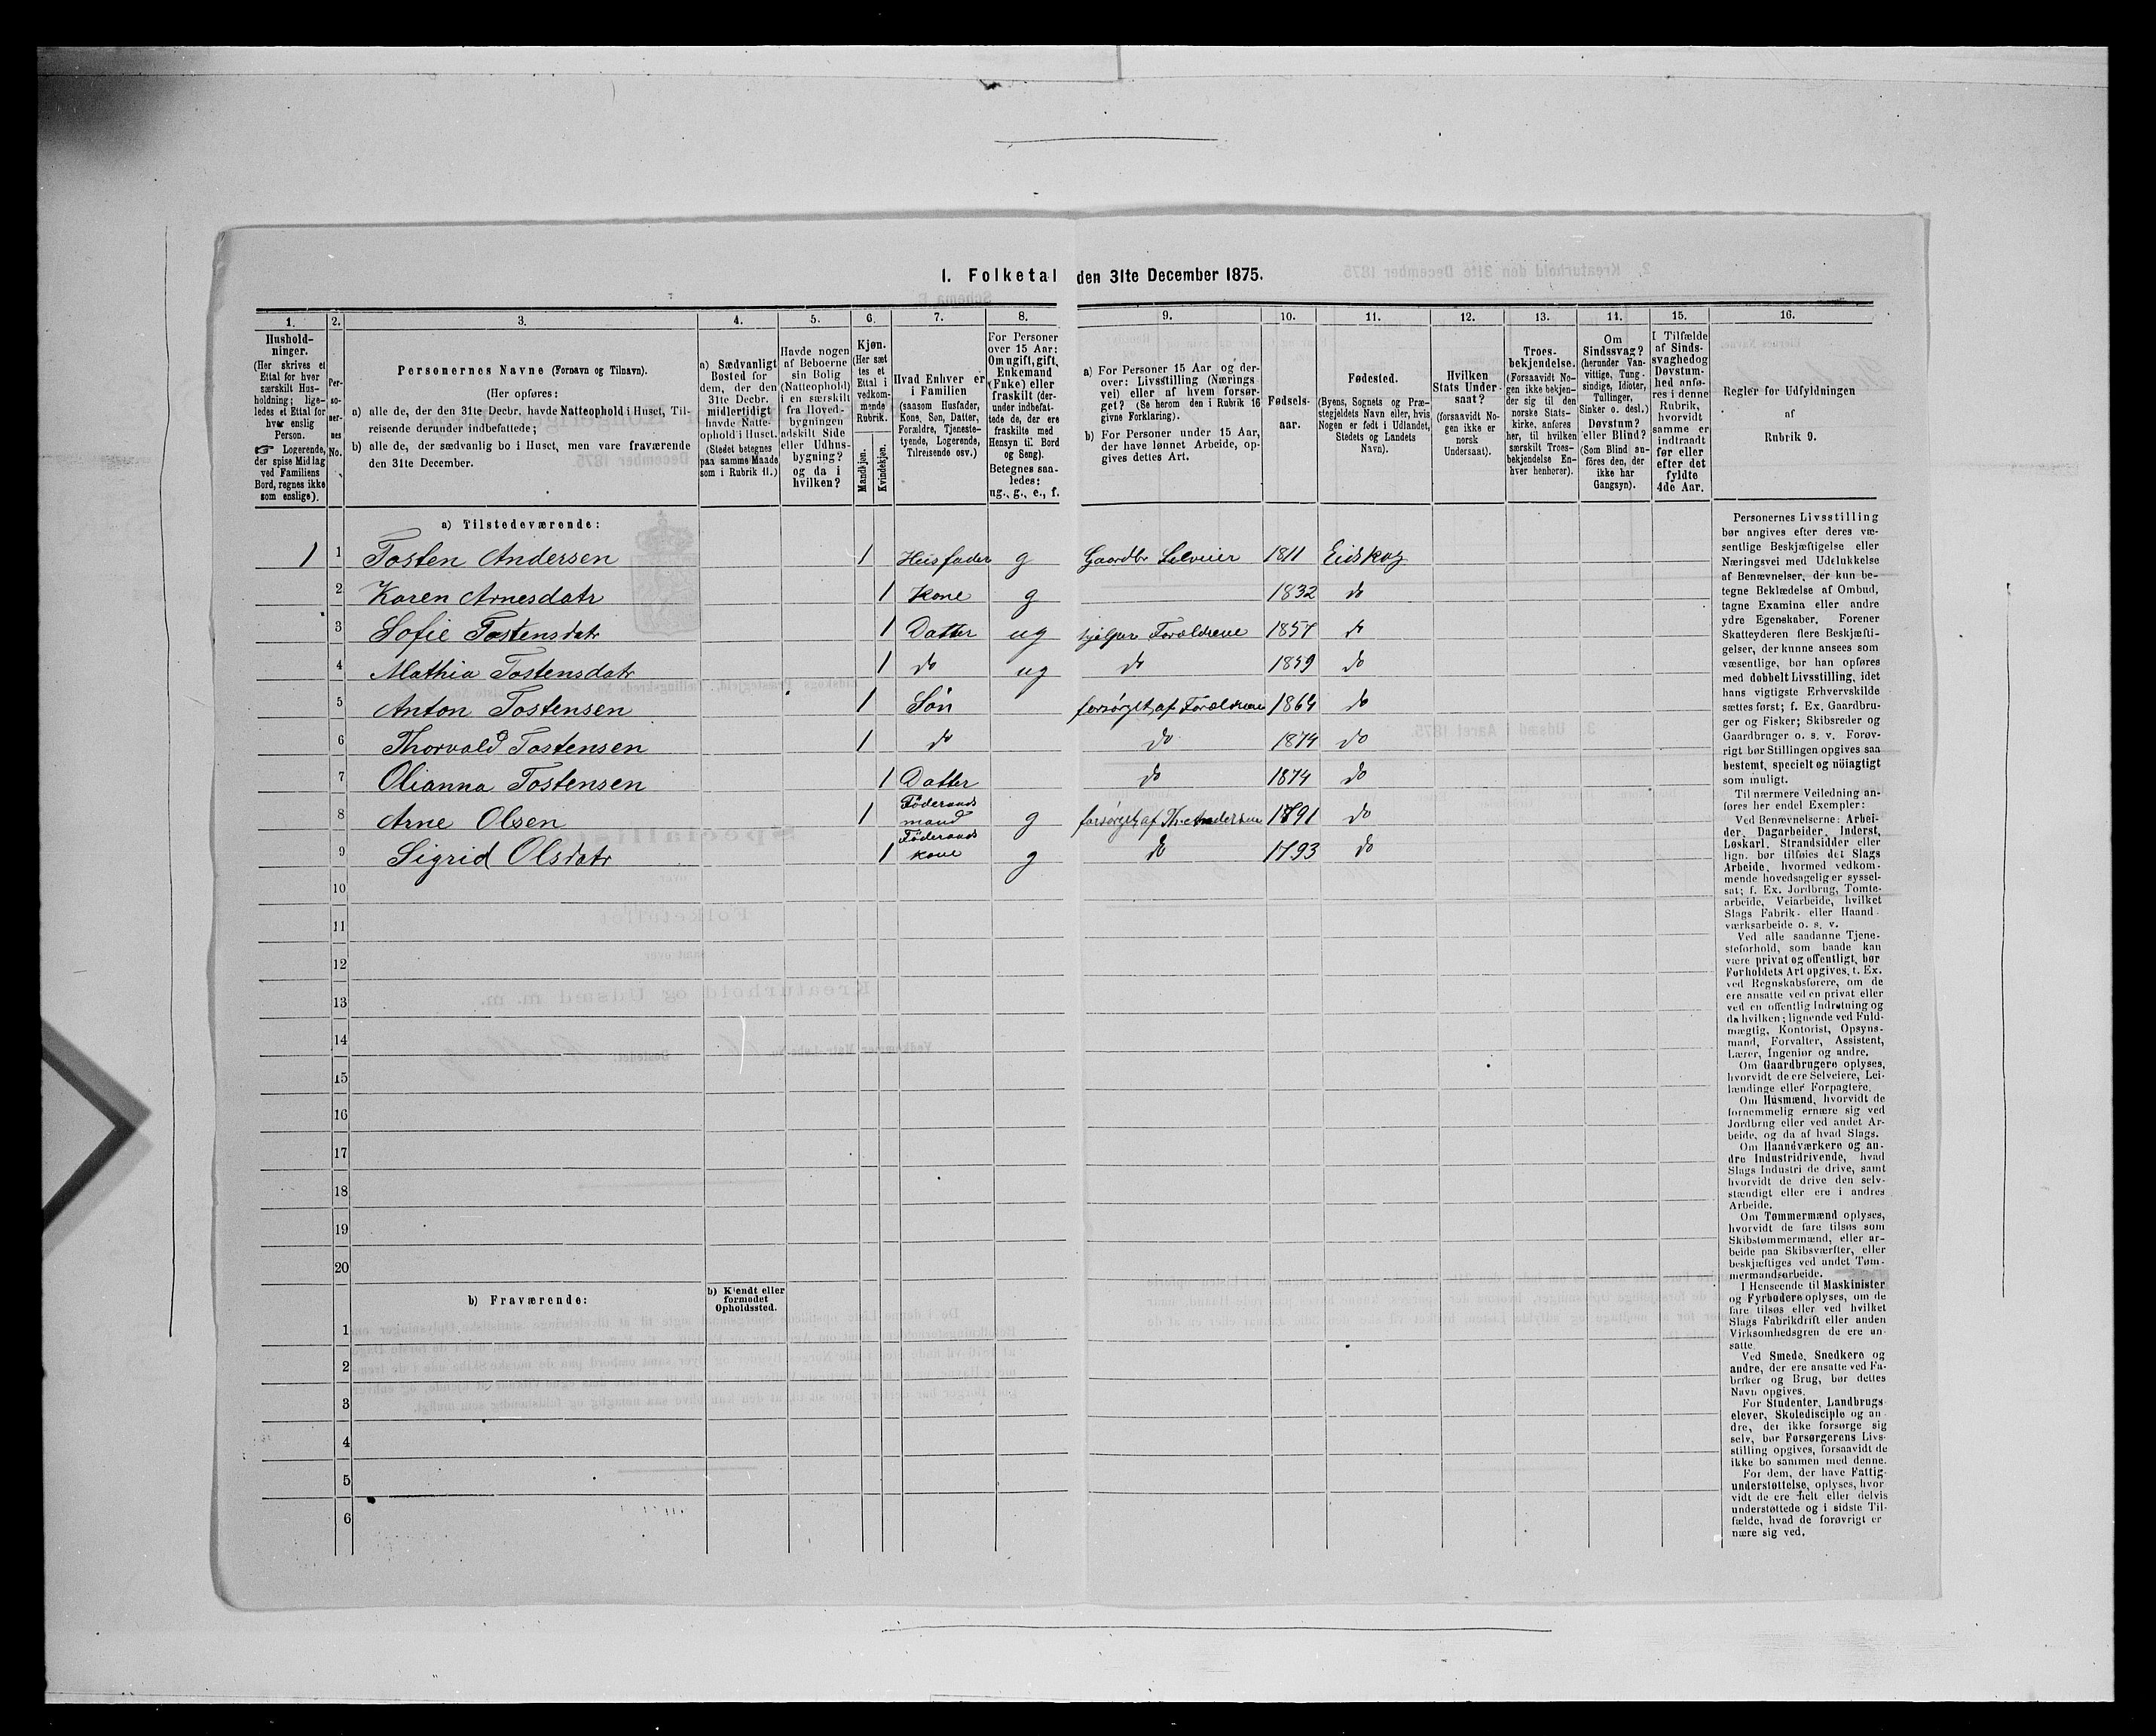 1. Folketal den 31te December 1875.
1. 2. 3. 4. 5. 6. 7. 8. 9. 10. 11. 12. 13. 14. 15. 16.
Hushold-
ninger.
(Her skrives et
Ettal for hver
særskilt Hus-
holdning; lige-
ledes et Ettal for
hver enslig
Person.
☞ Logerende,
der spise Middag
ved Familiens
Bord, regnes ikke
som enslige).
Per-
so-
ner-
nes
No.
Personernes Navne (Fornavn og Tilnavn).
(Her opføres:
a) alle de, der den 31te Decbr. havde Natteophold i Huset, Til-
reisende derunder indbefattede;
b) alle de, der sædvanlig bo i Huset, men vare fraværende
den 31te December.
a) Sædvanligt
Bosted for
dem, der den
31te Decbr.
midlertidigt
havde Natte-
ophold i Huset.
(Stedet betegnes
paa samme Maade
som i Rubrik 11.)
Havde nogen
af Beboerne
sin Bolig
(Natteophold)
i en særskilt
fra Hoved-
bygningen
adskilt Side
eller Udhus-
bygning?
og da i
hvilken?
Kjøn.
(Her sæt
tes et
Ettal i
vedkom-
mende
Rubrik.
Mandkjøn.
Kvindekjøn.
Hvad Enhver er
i Familien
(saasom Husfader,
Kone, Søn, Datter,
Forældre, Tjeneste-
tyende, Logerende,
Tilreisende osv.)
For Personer
over 15 Aar:
Om ugift, gift,
Enkemand
(Enke) eller
fraskilt (der-
under indbefat-
tede de, der ere
fraskilte med
Hensyn til Bord
og Seng).
Betegnes saa-
ledes:
ug., g., e., f.
a) For Personer 15 Aar og der-
over: Livsstilling (Nærings
vei) eller af hvem forsør-
get? (Se herom den i Rubrik 16
givne Forklaring).
b) For Personer under 15 Aar,
der have lønnet Arbeide, op-
gives dettes Art.
Fødsels-
aar.
Fødested.
(Byens, Sognets og Præ-
stegjeldets Navn eller, hvis
Nogen er født i Udlandet,
Stedets og Landets
Navn).
Hvilken
Stats Under-
saat?
(forsaavidt No-
gen ikke er
norsk
Undersaat).
Troes-
bekjendelse.
(Forsaavidt No-
gen ikke bekjen-
der sig til den
norske Stats-
kirke, anføres
her, til hvilken
særskilt Troes-
bekjendelse En-
hver henhører).
Om
Sindssvag?
(herunder Van-
vittige, Tung-
sindige, Idioter,
Tullinger,
Sinker o. desl.)
Døvstum?
eller Blind?
(Som Blind an-
føres den, der
ikke har
Gangsyn).
I Tilfælde
af Sinds-
svaghed og
Døvstum-
hed anfø-
res i denne
Rubrik,
hvorvidt
samme er
indtraadt
før eller
efter det
fyldte
4de Aar.
Regler for Udfyldningen
af
Rubrik 9.
a) Tilstedeværende:
1 1 Tosten Andersen 1 Husfader g Gaardbr Selveier 1811 Eidskog
2 Karen Arnesdatr 1 Kone g 1832 do
3 Sofie Tostensdatr 1 Datter ug hjelper Forældrene 1857 do
4 Mathia Tostensdatr 1 do ug do 1859 do
5 Anton Tostensen 1 Søn forsørget af Forældrene 1864 do
6 Thorvald Tostensen 1 do do 1874 do
7 Olianna Tostensen 1 Datter do 1874 do
8 Arne Olsen 1 Föderaads mand g forsørget af Th. Andersen 1791 do
9 Sigrid Olsdatr 1 Föderaads kone g do 1793 do
10
11
12
13
14
15
16
17
18
19
20
b) Fraværende:
b) Kjendt eller
formodet
Opholdssted.
1
2
3
4
5
6
Personernes Livsstilling
bør angives efter deres væ-
sentlige Beskjæftigelse eller
Næringsvei med Udelukkelse
af Benævnelser, der kun be-
tegne Beklædelse af Ombud,
tagne Examina eller andre
ydre Egenskaber. Forener
Skatteyderen flere Beskjæfti-
gelser, der kunne ansees som
væsentlige, bør han opføres
med dobbelt Livsstilling, idet
hans vigtigste Erhvervskilde
sættes først; f. Ex. Gaardbru-
ger og Fisker; Skibsreder og
Gaardbruger o. s. v. Forøv-
rigt bør Stillingen opgives saa
bestemt, specielt og nöiagtigt
som muligt.
Til nærmere Veiledning an-
føres her endel Exempler:
Ved Benævnelserne: Arbei-
der, Dagarbeider, Inderst,
Løskarl, Strandsidder eller
lign. bør tilføies det Slags
Arbeide, hvormed vedkom-
mende hovedsagelig er syssel-
sat; f. Ex. Jordbrug, Tomte-
arbeide, Veiarbeide, hvilket
Slags Fabrik- eller Haand-
værksarbeide o. s. v.
Ved alle saadanne Tjene-
steforhold, som baade kan
være privat og offentligt, bør
Forholdets Art opgives, t. Ex.
ved Regnskabsførere, om de
ere ansatte ved en privat eller
ved en offentlig Indretning og
da hvilken; lignende ved Fuld-
mægtig, Kontorist, Opsyns-
mand, Forvalter, Assistent,
Lærer, Ingeniør og andre.
Om Gaardbrugere oplyses,
hvorvidt de ere Selveiere, Lei-
lændinge eller Forpagtere.
Om Husmænd, hvorvidt de
fornemmelig ernære sig ved
Jordbrug eller ved andet Ar-
beide, og da af hvad Slags.
Om Haandværkere og an-
dre Industridrivende, hvad
Slags Industri de drive, samt
hvorvidt de drive den selv-
stændigt eller ere i andres
Arbeide.
Om Tømmermænd oplyses,
hvorvidt de fare tilsøs som
Skibstømmermænd, eller ar-
beide paa Skibsværfter, eller
beskjæftiges ved andet Tøm-
mermandsarbeide.
I Henseende til Maskinister
og Fyrbødere oplyses, om de
fare tilsøs eller ved hvilket
Slags Fabrikdrift eller anden
Virksomhedsgren de ere an-
satte.
Ved Smede, Snedkere og
andre, der ere ansatte ved Fa-
briker og Brug, bør dettes
Navn opgives.
For Studenter, Landbrugs-
elever, Skoledisciple og an-
dre, der ikke forsørge sig
selv, bør Forsørgerens Livs-
stilling opgives, forsaavidt de
ikke bo sammen med denne.
For dem, der have Fattig-
understøttelse, oplyses, hvor
vidt de ere helt eller delvis
understøttede og i sidste Til-
fælde, hvad de forøvrigt er
nære sig ved.